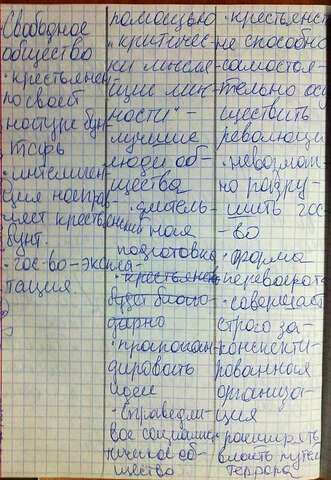 Свободное
общество
· крестьянин
по своей
натуре бун-
тарь
· интеллиген-
ция направ-
ляет крестья
бунт.
· гос-во – эксплуа-
тация
помощью
"критичес-
ки мысля-
щие лич-
ности" –
лучшие
люди об-
щества
· длитель-
ная
подготовка
· крестьянств
будет благо-
дарно
· пропаган-
дировать
идеи
· Справедли-
вое социалис-
тическое об-
щество
· крестьянст
не способно
самостоя-
тельно осу
ществить
революци
· невозмож-
но разру-
шить гос
-во
· форма
переворота
· совершает
строго за-
конспекти-
рованная
организа-
ция
· расширять
власть путём
террора